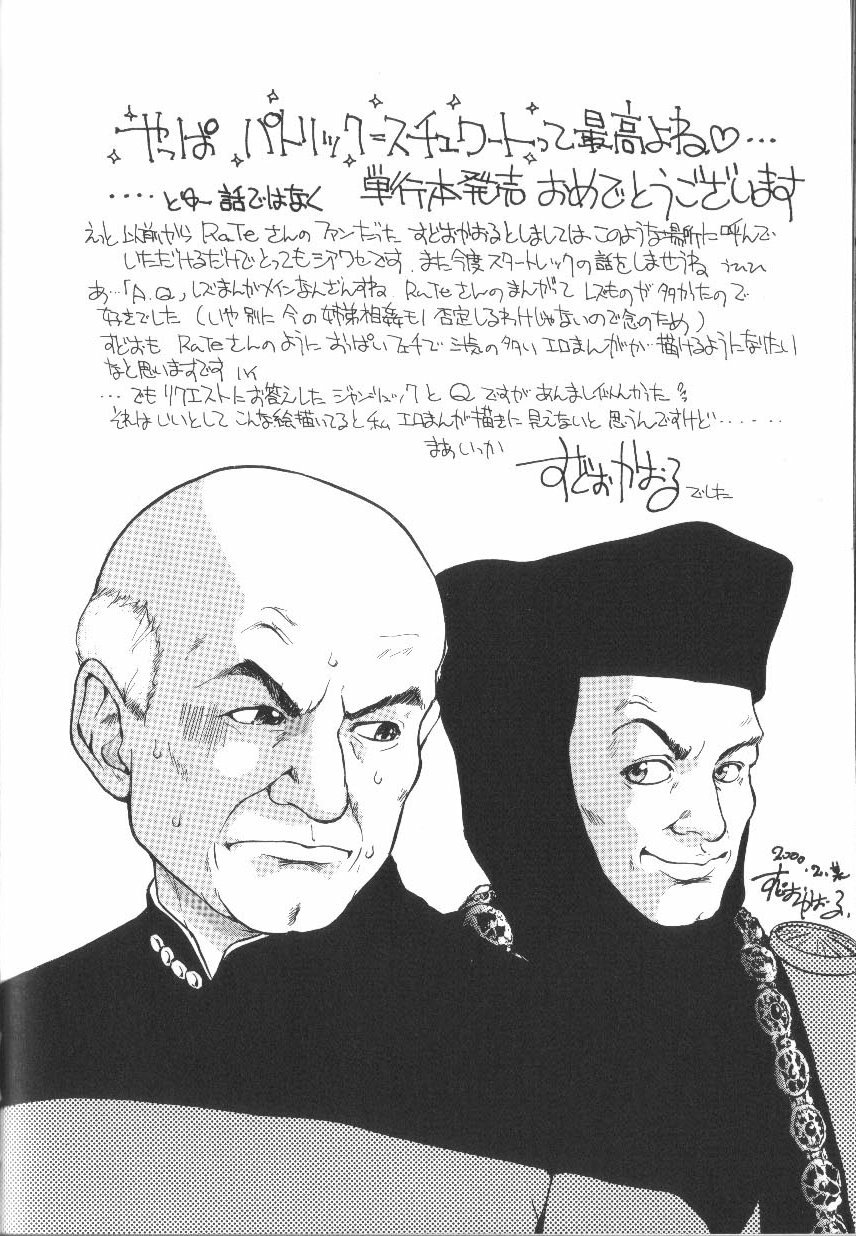 やっぱ パトリック=スチュワートって最高よね♡…
‥‥とゆー話ではなく 単行本発売 おめでとうございます
えっと以前から RaTeさんのファンだった すどおかおるとしましては、このような場所に呼んで
いただけるだけでとってもシアワセです。また今度スタートレックの話をしませうね うひひ
あ…「A.Q」レズまんがメインなんざんすね。RaTeさんのまんがって レズものが多かったので
好きでした(いや別に今の姉弟相姦も 否定しるわけじゃないので念のため)
すどおも RaTeさんのように おっぱいフェチで 汁気の多い エロまんがが 描けるようになりたい
なと思いますです ハイ
…でもリクエストにお答えした ジャン=リュックと Qですがあんまし似んかった
それはいいとして こんな絵描いてると私 エロまんが描きに 見えないと 思うんですけど‥‥‥
まあいっか
すどおかおる でした
2000.2.
すどおかおる.